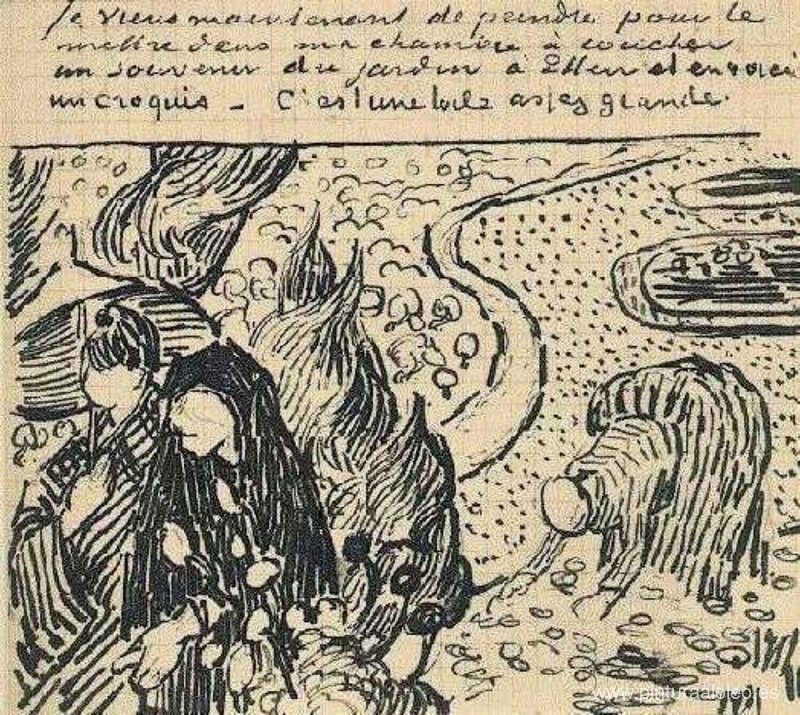 Je viens maintenant de peindre pour le
mettre dans ma chambre à coucher
un souvenir du jardin à Etten et en voici
un croquis – C'est une toile assez grande.
www.pinturaaloleo.es